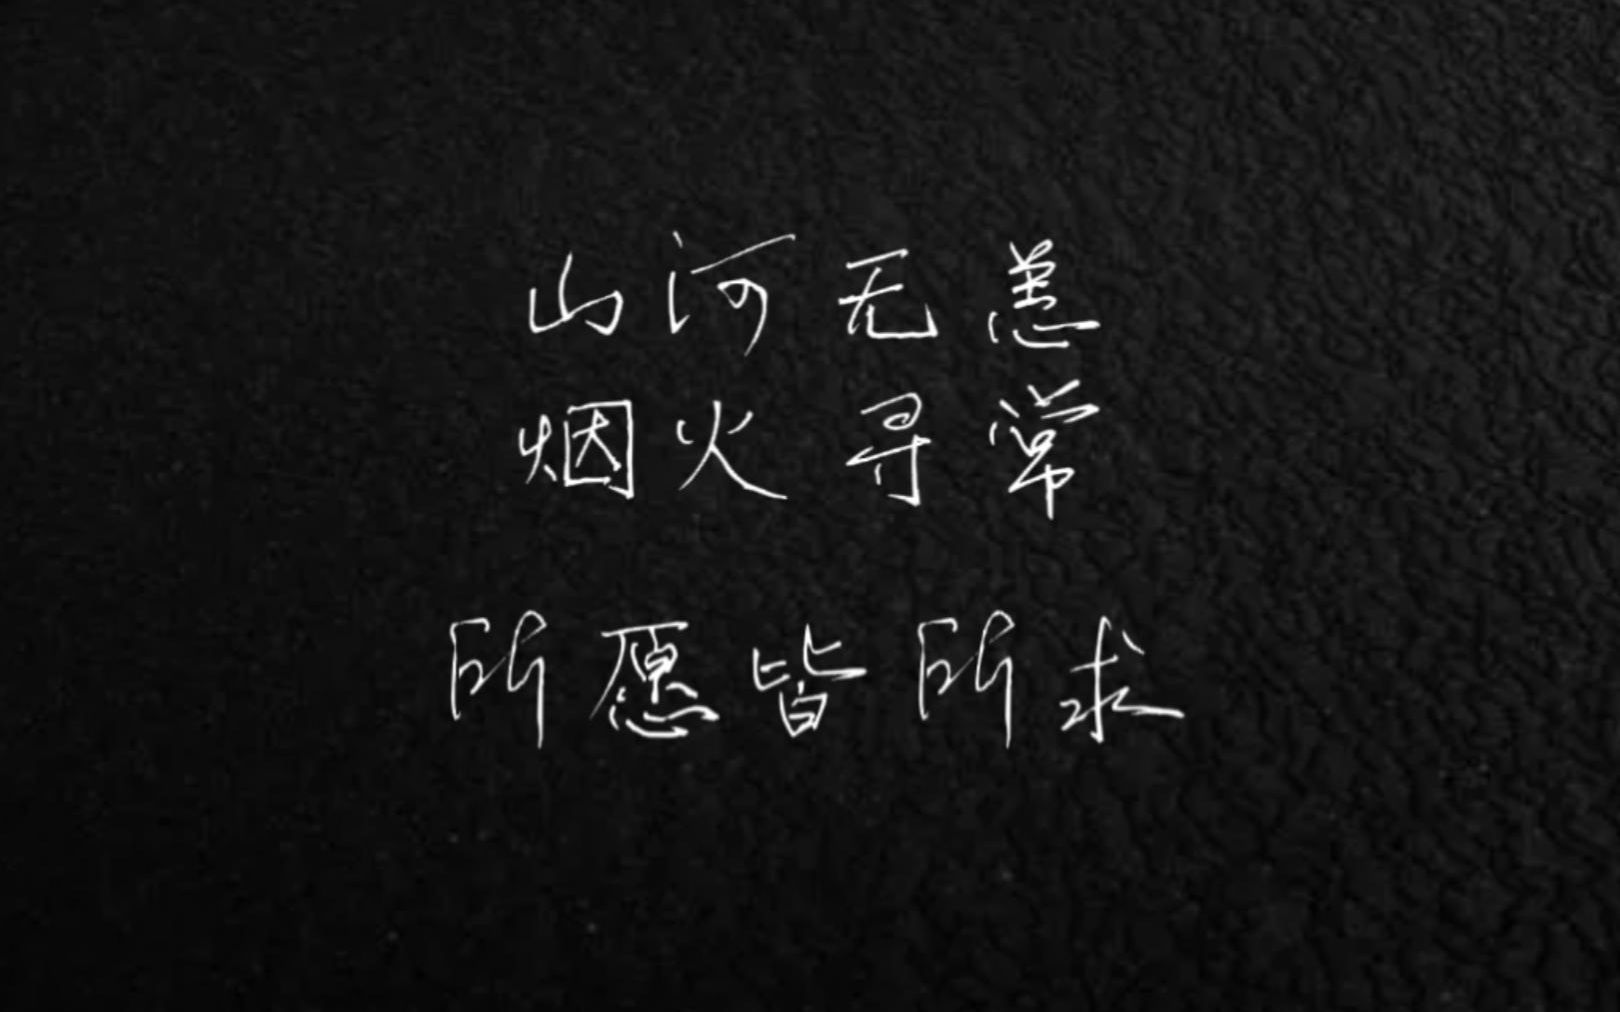 山河无恙
烟火寻常
所愿皆所求